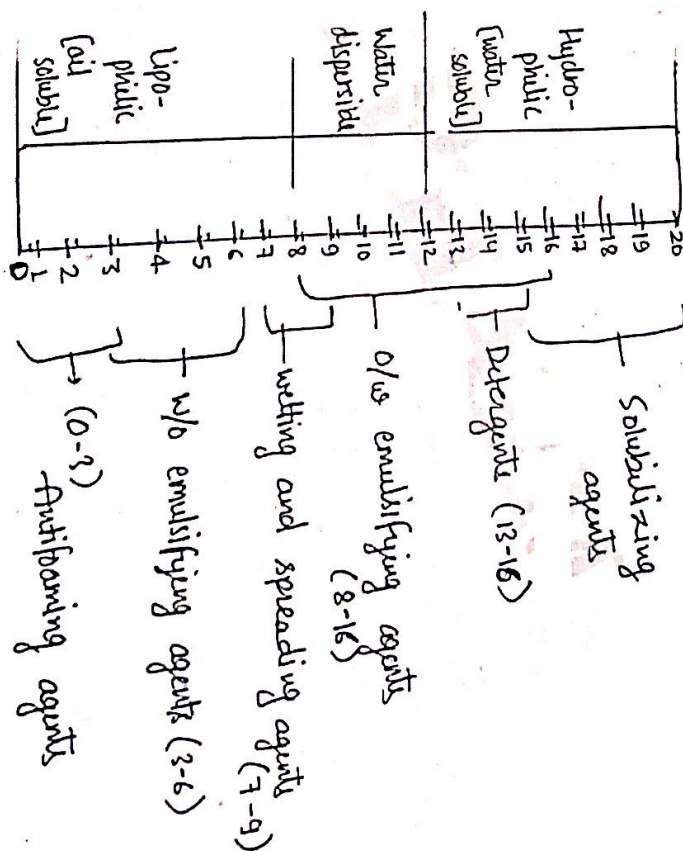 Hydro-
philic
[water
soluble]
Water
disperside
Lipo-
philic
[oil
soluble]
20
19
18
17
16
15
14
13
12
11
10
9
8
7
6
5
4
3
2
1
0
Solubilizing
agents
Detergents (13-16)
O/W emulsifying agents
(8-16)
wetting and spreading agents
(7-9)
W/O emulsifying agents (3-6)
(0-3)
Antifoaming agents